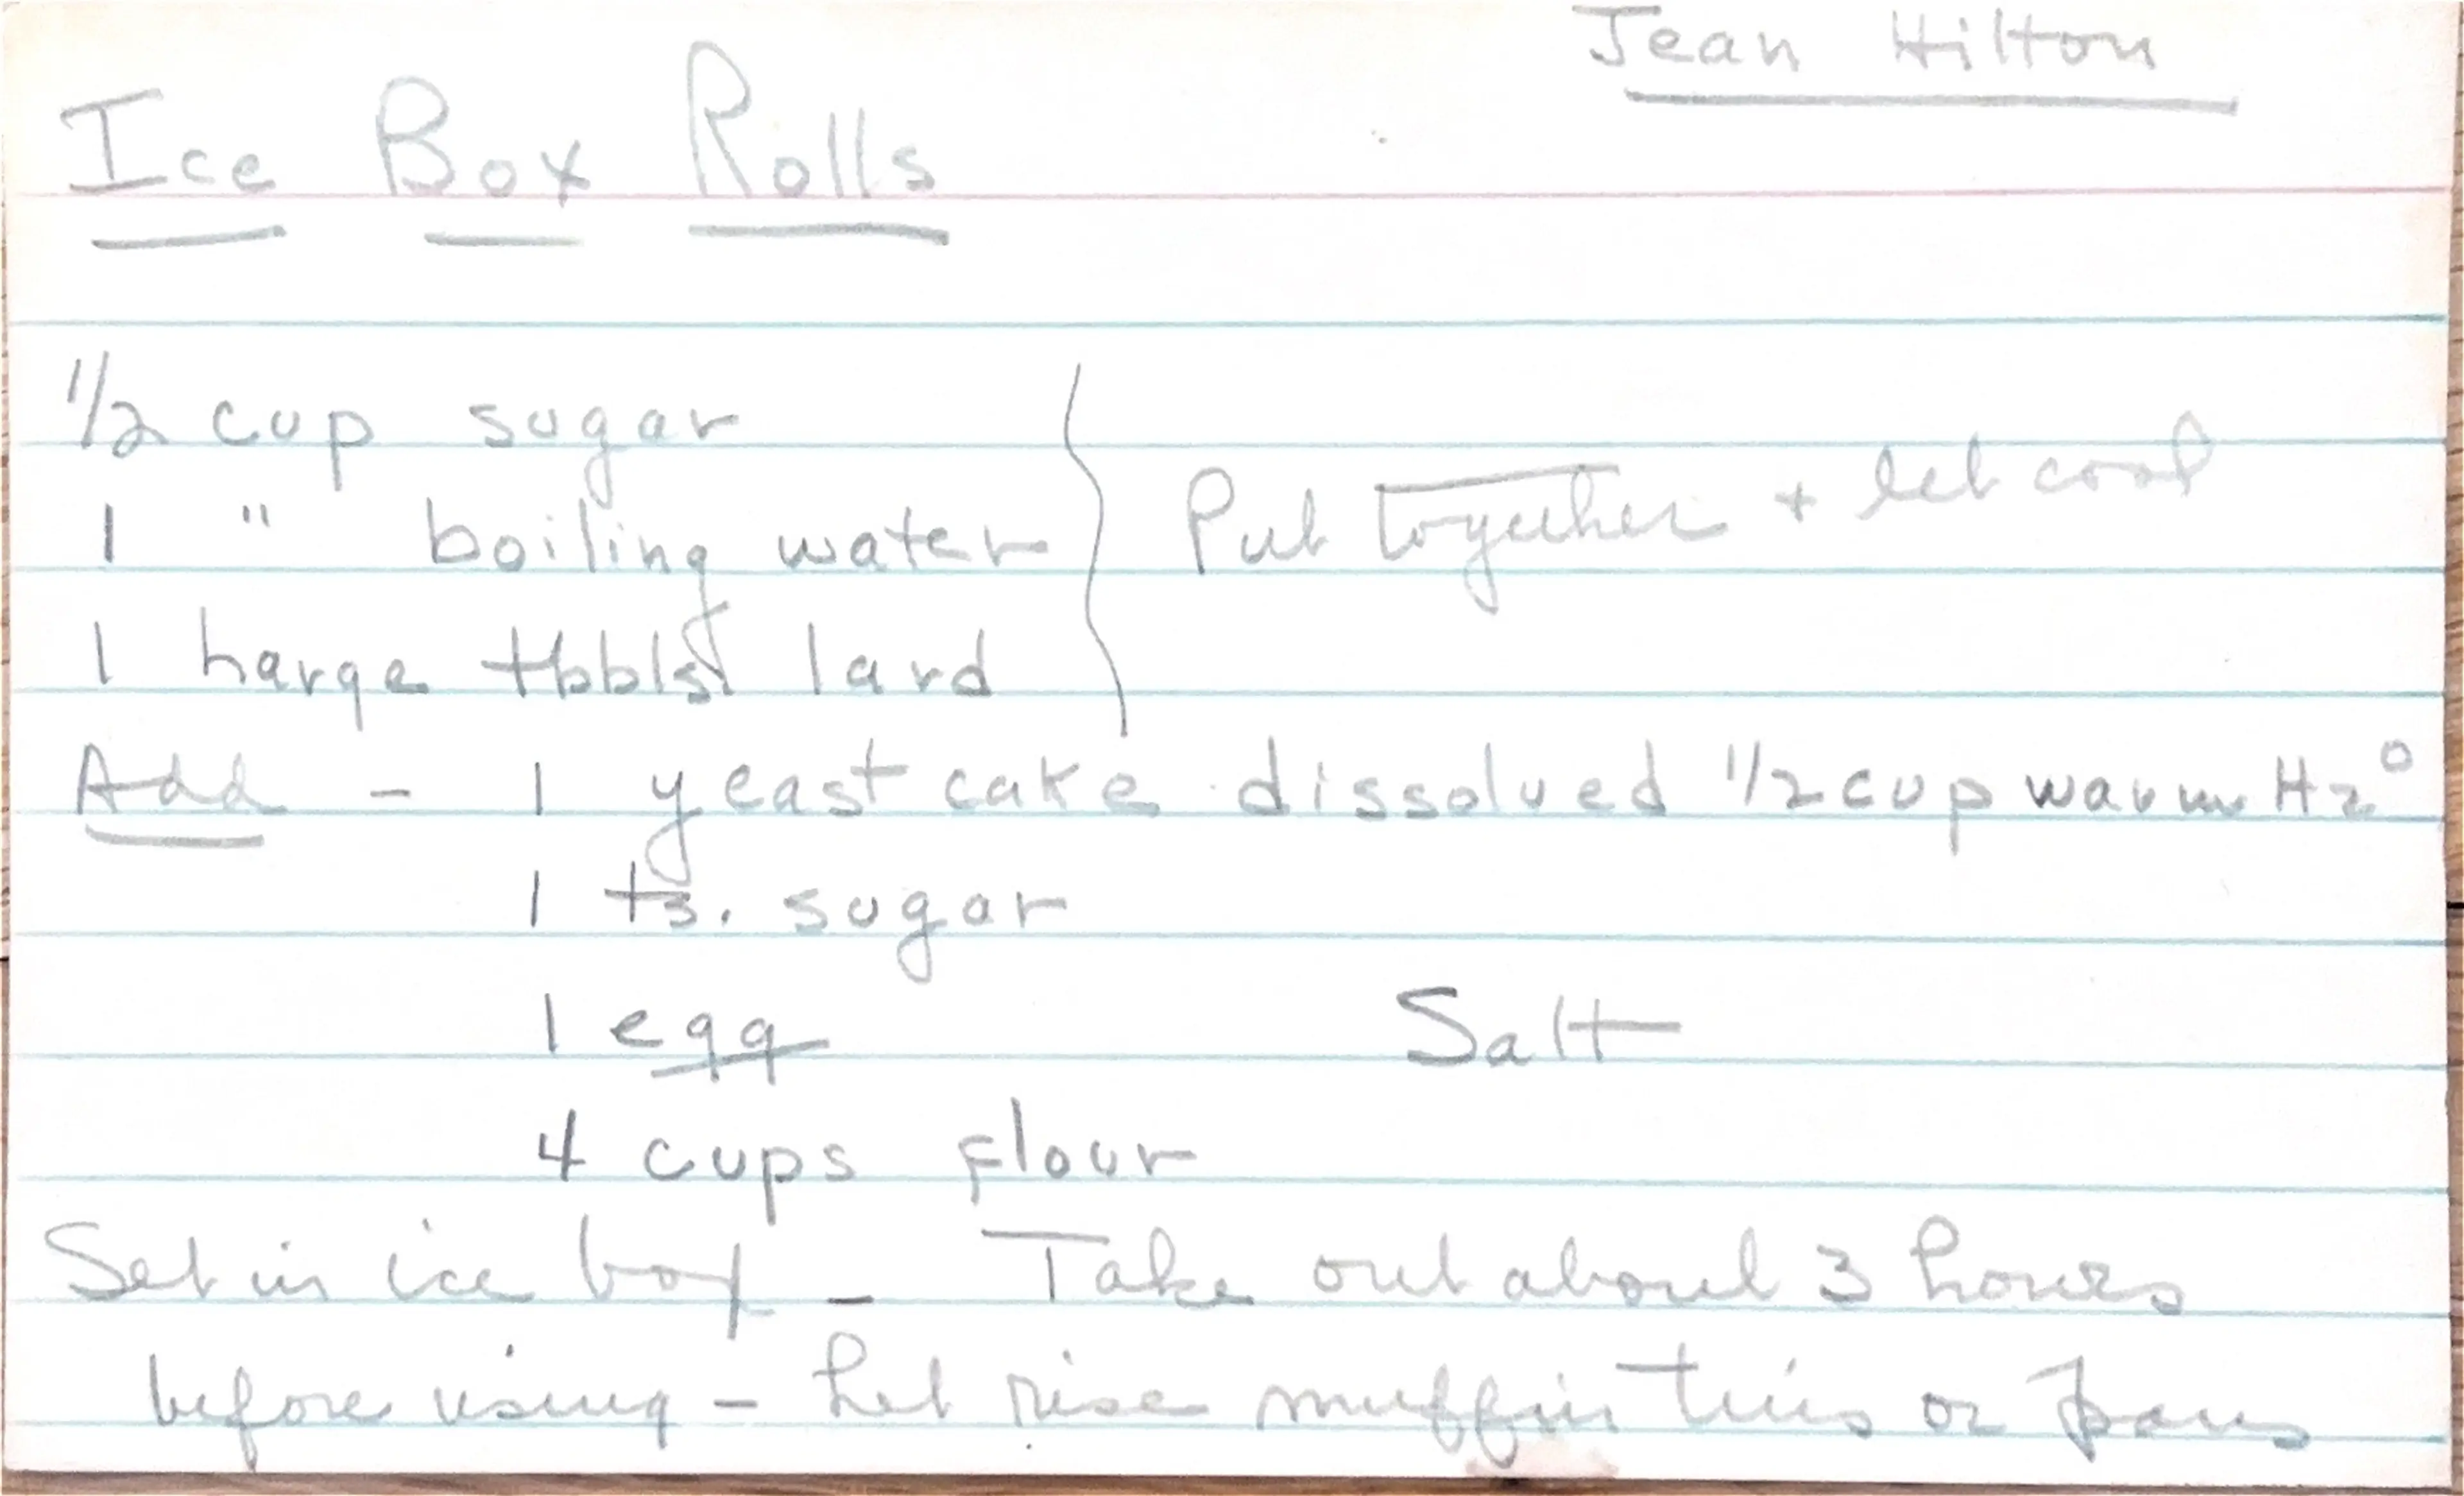 Jean Hilton
Ice Box Rolls
1/2 cup sugar
1 " boiling water
Put together + let cool
1 large tbblsf lard
Add - 1 yeast cake dissolved 1/2 cup warm H2O
1 ts. sugar
1 egg Salt
4 cups flour
Set in ice box - Take out about 3 hours
before using - Let rise muffin tins or pans